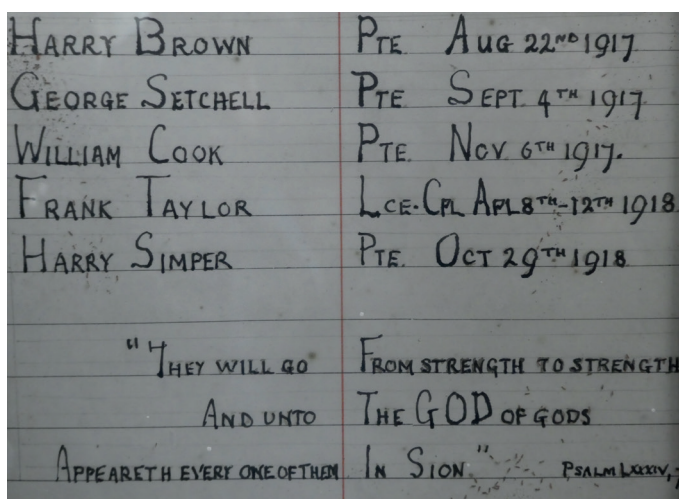 HARRY BROWN PTE AUG 22ND 1917
GEORGE SETCHELL PTE SEPT. 4TH 1917
WILLIAM COOK PTE. NOV 6TH 1917.
FRANK TAYLOR LCE-CPL APL 8TH-12TH 1918
HARRY SIMPER PTE. OCT 29TH 1918
"THEY WILL GO FROM STRENGTH TO STRENGTH
AND UNTO THE GOD OF GODS
APPEARETH EVERY ONE OF THEM IN SION" PSALM LXXXIV, 7